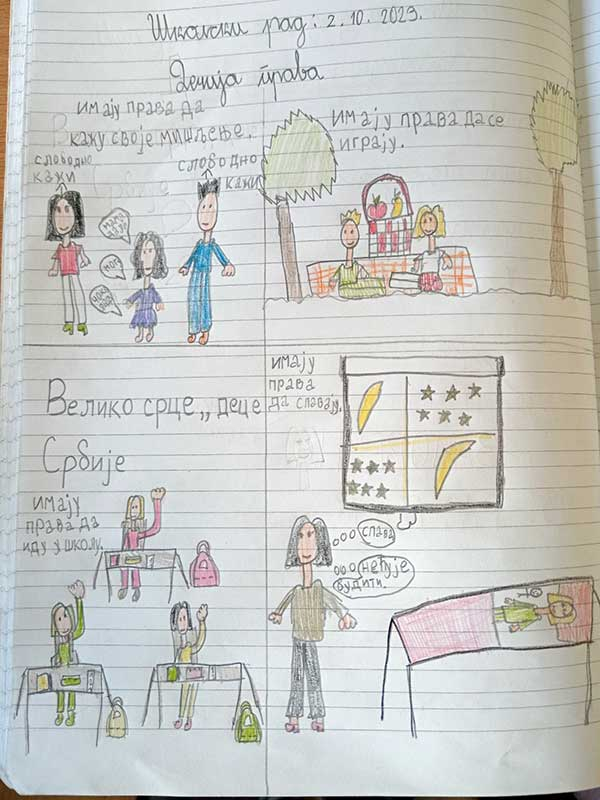 Школски рад: 2. 10. 2023.
Дечија права
имају права да
кажу своје мишљење.
слободно
кажи
слободно
кажи
имају права да се
играју.
Велико срце „ деце
Србије
имају
права да
иду у школу.
имају
права
да спавају.
спава
нећу је
будити.